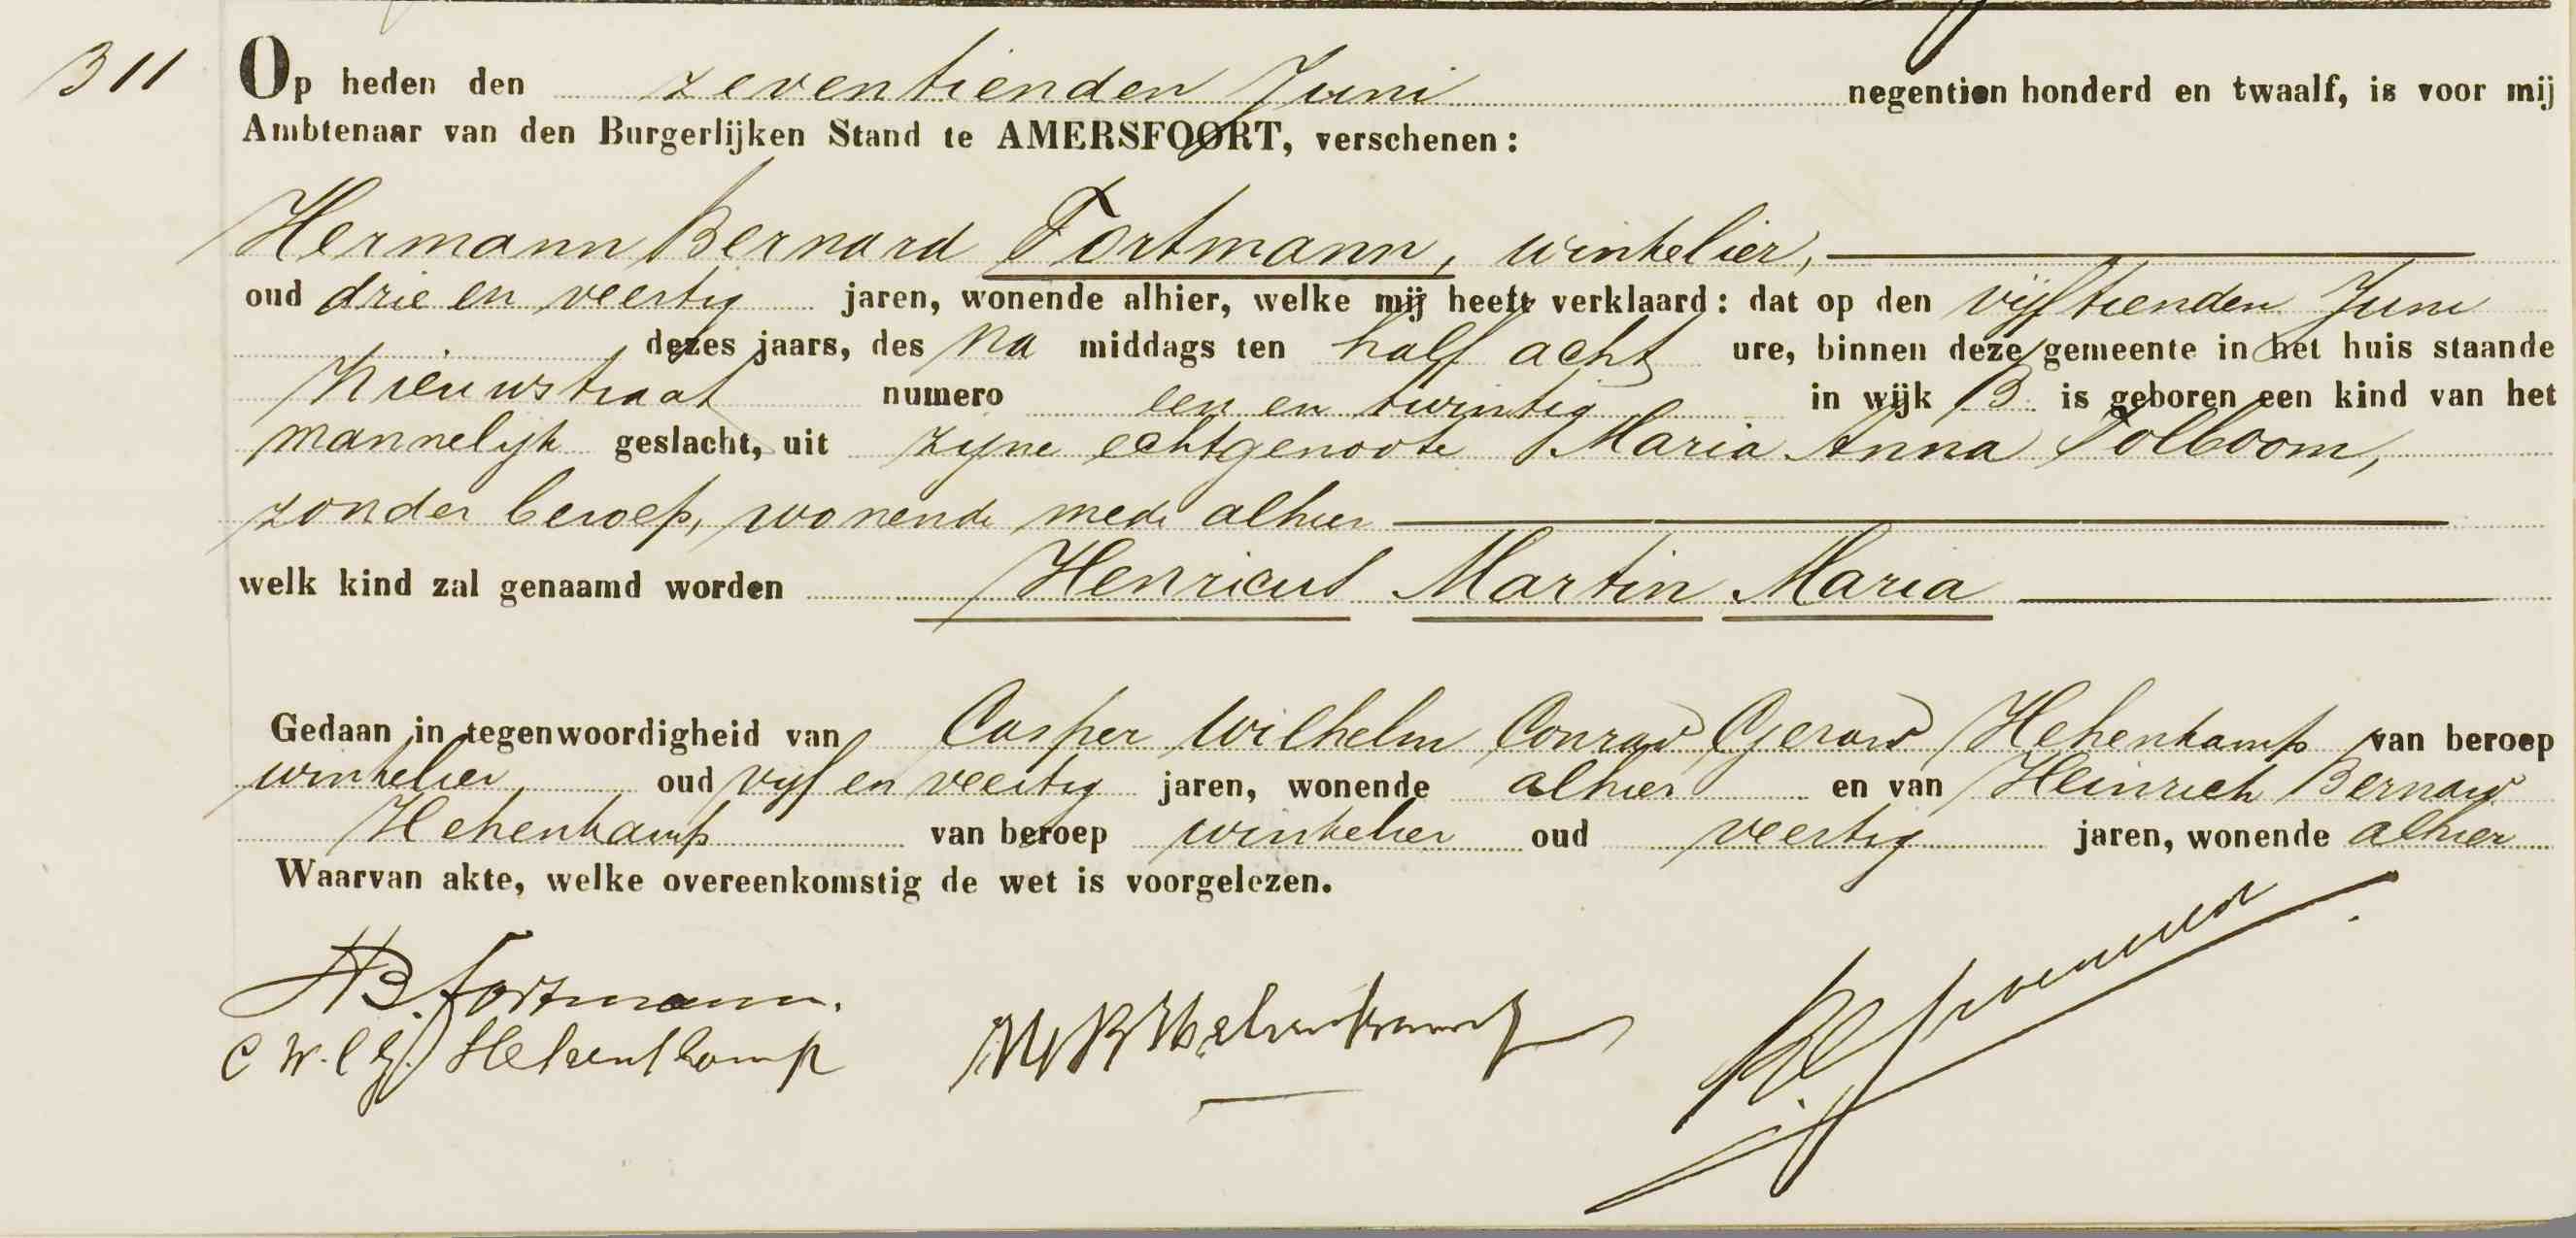 311
Op heden den zeventienden Juni negentien honderd en twaalf, is voor mij
Ambtenaar van den Burgerlijken Stand te AMERSFOORT, verschenen:
Hermann Bernard Fortmann, winkelier,
oud drie en veertig jaren, wonende alhier, welke mij heeft verklaard: dat op den vijftienden Juni
dezes jaars, des na middags ten half acht ure, binnen deze gemeente in het huis staande
Nieuwstraat numero een en twintig in wijk B is geboren een kind van het
mannelijk geslacht, uit zijne echtgenoote Maria Anna Tolboom,
zonder beroep, wonende mede alhier
welk kind zal genaamd worden Henricus Martin Maria
Gedaan in tegenwoordigheid van Casper Wilhelm Conrad Gerard Hehenkamp van beroep
winkelier oud vijf en veertig jaren, wonende alhier en van Heinrich Bernard
Hehenkamp van beroep winkelier oud veertig jaren, wonende alhier
Waarvan akte, welke overeenkomstig de wet is voorgelezen.
HB. Fortmann.
C W. C G. Hehenkamp